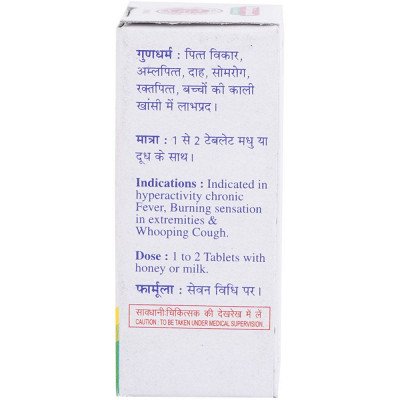 गुणधर्म : पित्त विकार,
अम्लपित्त, दाह, सोमरोग,
रक्तपित्त, बच्चों की काली
खांसी में लाभप्रद।
मात्रा : 1 से 2 टेबलेट मधु या
दूध के साथ।
Indications : Indicated in
hyperactivity chronic
Fever, Burning sensation
in extremities &
Whooping Cough.
Dose : 1 to 2 Tablets with
honey or milk.
फार्मूला : सेवन विधि पर।
सावधानी:चिकित्सक की देखरेख में लें
CAUTION : TO BE TAKEN UNDER MEDICAL SUPERVISION